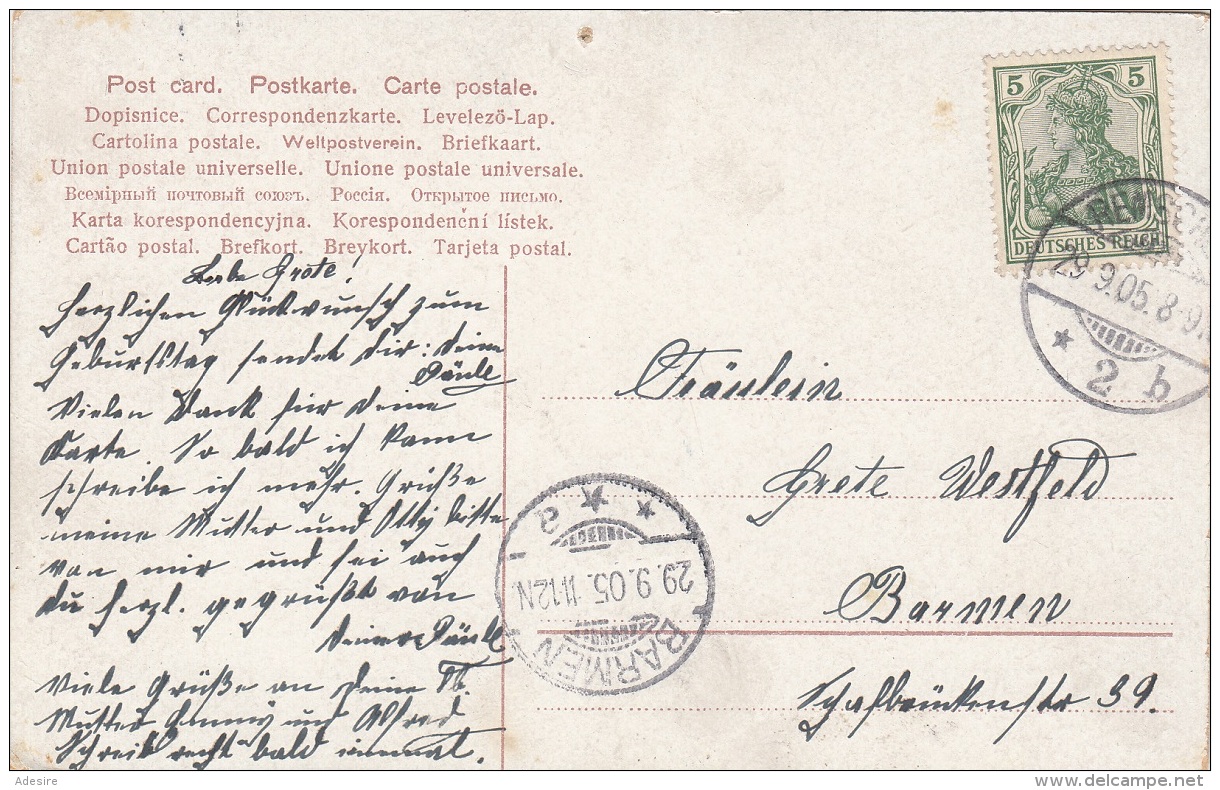 Post card. Postkarte. Carte postale.
Dopisnice. Correspondenzkarte. Levelezö-Lap.
Cartolina postale. Weltpostverein. Briefkaart.
Union postale universelle. Unione postale universale.
Всемірный почтовый союзъ. Россія. Открытое письмо.
Karta korespondencyjna. Korespondenční lístek.
Cartão postal. Brefkort. Brevkort. Tarjeta postal.
Liebe Grete!
Herzlichen Glückwunsch zum
Geburtstag sendet dir: Deine
Päule
Vielen Dank für deine
Karte. So bald ich kann
schreibe ich mehr. Grüße
meine Mutter und Otty bitte
von mir und sei auch
du herzl. gegrüßt von
Deiner Päule
Viele Grüße an deine lb.
Mutter Emmy und Alfred
Schreib recht bald einmal.
5 5
DEUTSCHES REICH
REMSCH
29 9.05. 8-9
* 2 b
Fräulein
Grete Westfeld
Barmen
Schafbrückenstr 39.
BARMEN
29.9.05. 11-12N.
* * 8
Adesire
delcampe.net